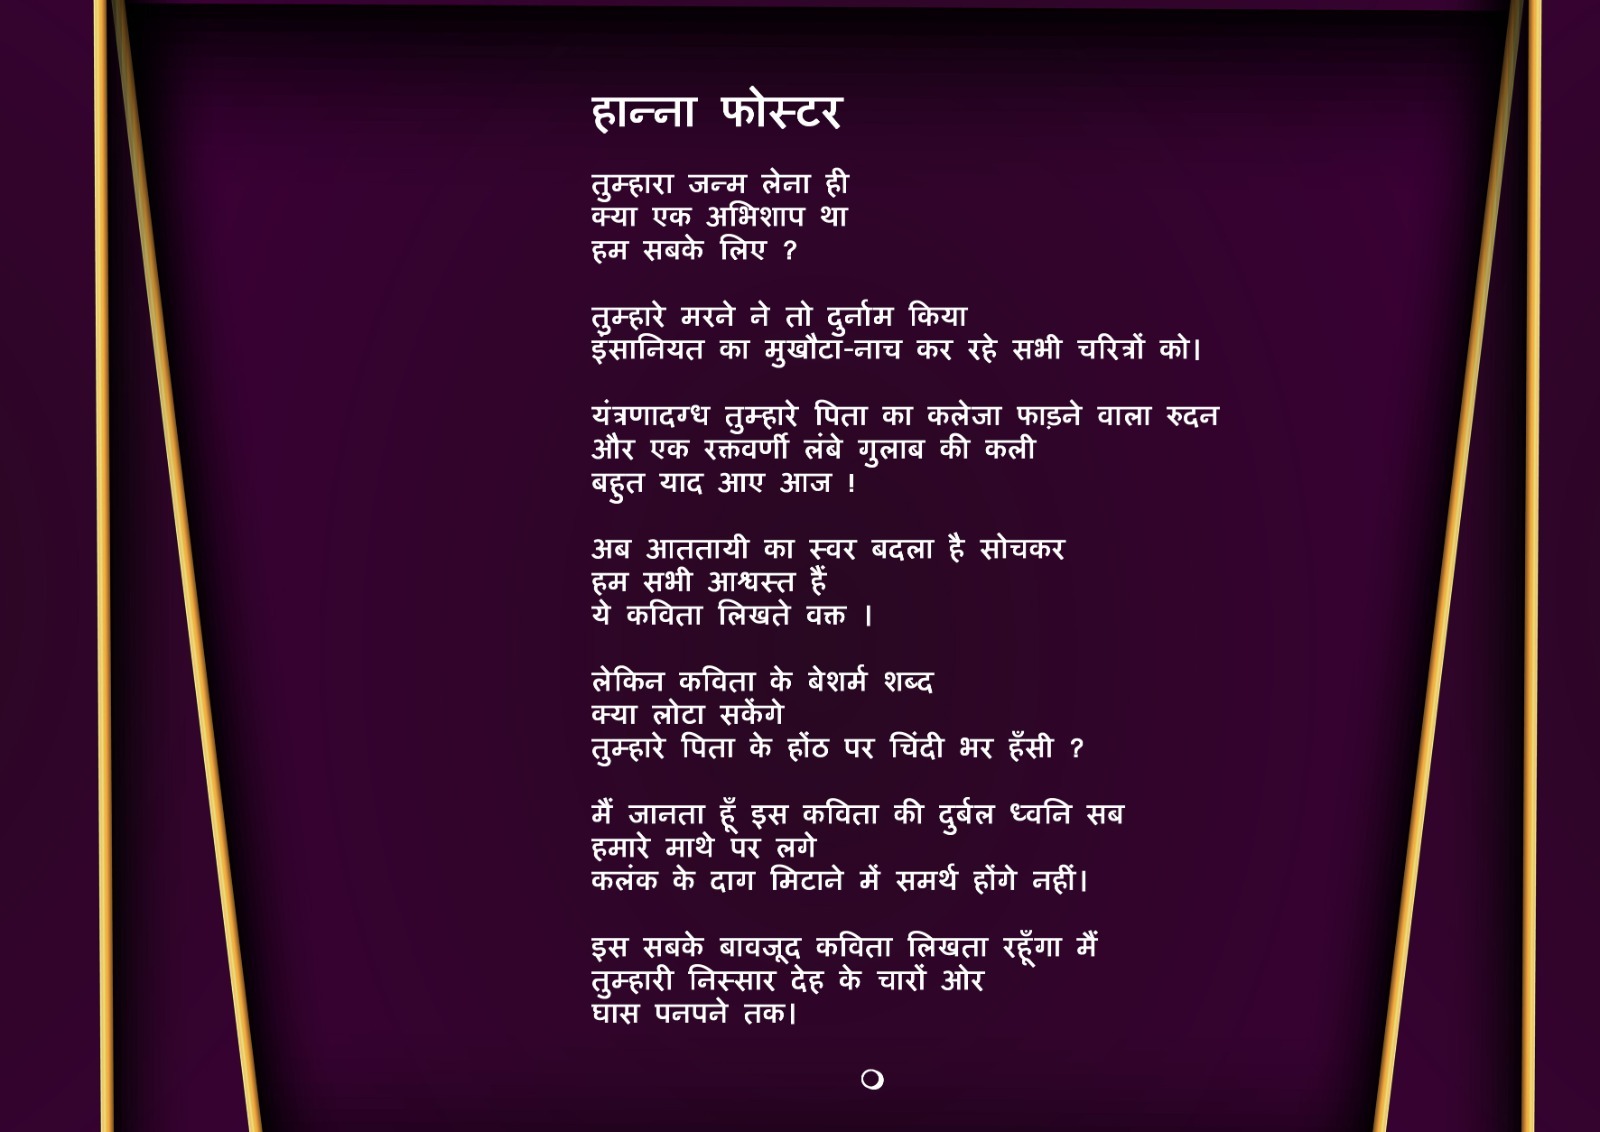 हान्ना फोस्टर
तुम्हारा जन्म लेना ही
क्या एक अभिशाप था
हम सबके लिए ?
तुम्हारे मरने ने तो दुर्नाम किया
इंसानियत का मुखौटा-नाच कर रहे सभी चरित्रों को।
यंत्रणादग्ध तुम्हारे पिता का कलेजा फाड़ने वाला रुदन
और एक रक्तवर्णी लंबे गुलाब की कली
बहुत याद आए आज !
अब आततायी का स्वर बदला है सोचकर
हम सभी आश्वस्त हैं
ये कविता लिखते वक्त ।
लेकिन कविता के बेशर्म शब्द
क्या लोटा सकेंगे
तुम्हारे पिता के होंठ पर चिंदी भर हँसी ?
मैं जानता हूँ इस कविता की दुर्बल ध्वनि सब
हमारे माथे पर लगे
कलंक के दाग मिटाने में समर्थ होंगे नहीं।
इस सबके बावजूद कविता लिखता रहूँगा मैं
तुम्हारी निस्सार देह के चारों ओर
घास पनपने तक।